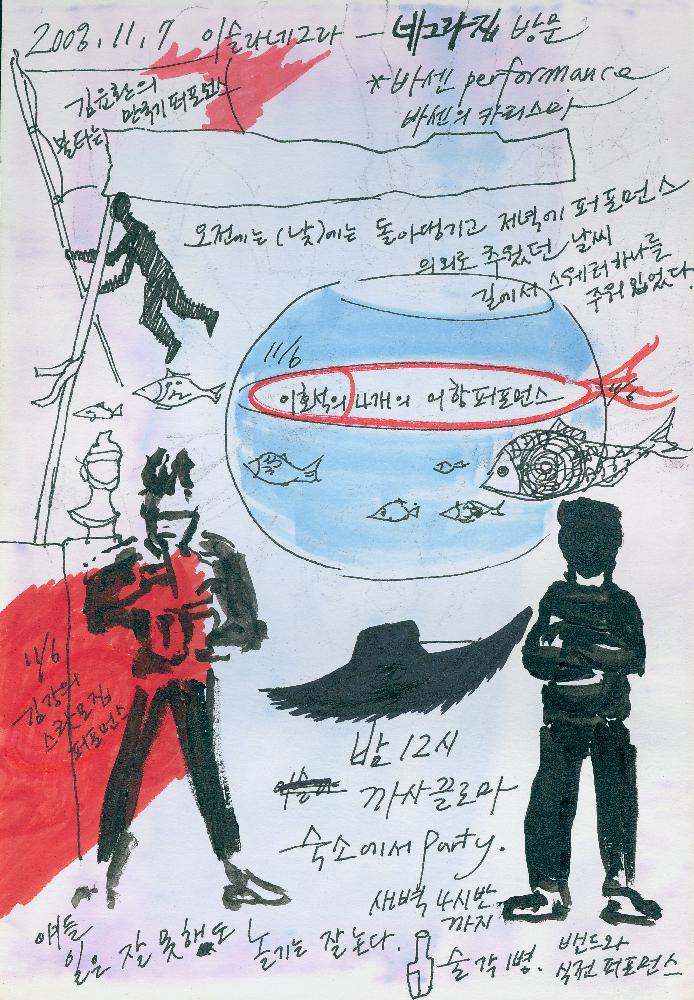 2008.11.7 이슬라네그라 - 네그라집 방문
*바센 performance
바센의 카리스마
김윤환의
만국기 퍼포먼스
불타는
오전에는 (낮)에는 돌아댕기고 저녁에 퍼포먼스
의외로 추웠던 날씨
길에서 스웨터 하나를
주워 입었다.
11/6
이호석의 4개의 어항퍼포먼스
11/6
김강의
스쾃모집
퍼포먼스
밤 12시
까사 꼴로마
숙소에서 party.
새벽 4시반
까지
얘들
일은 잘 못해도 놀기는 잘 논다.
술 각 1병.
밴드와
실전 퍼포먼스